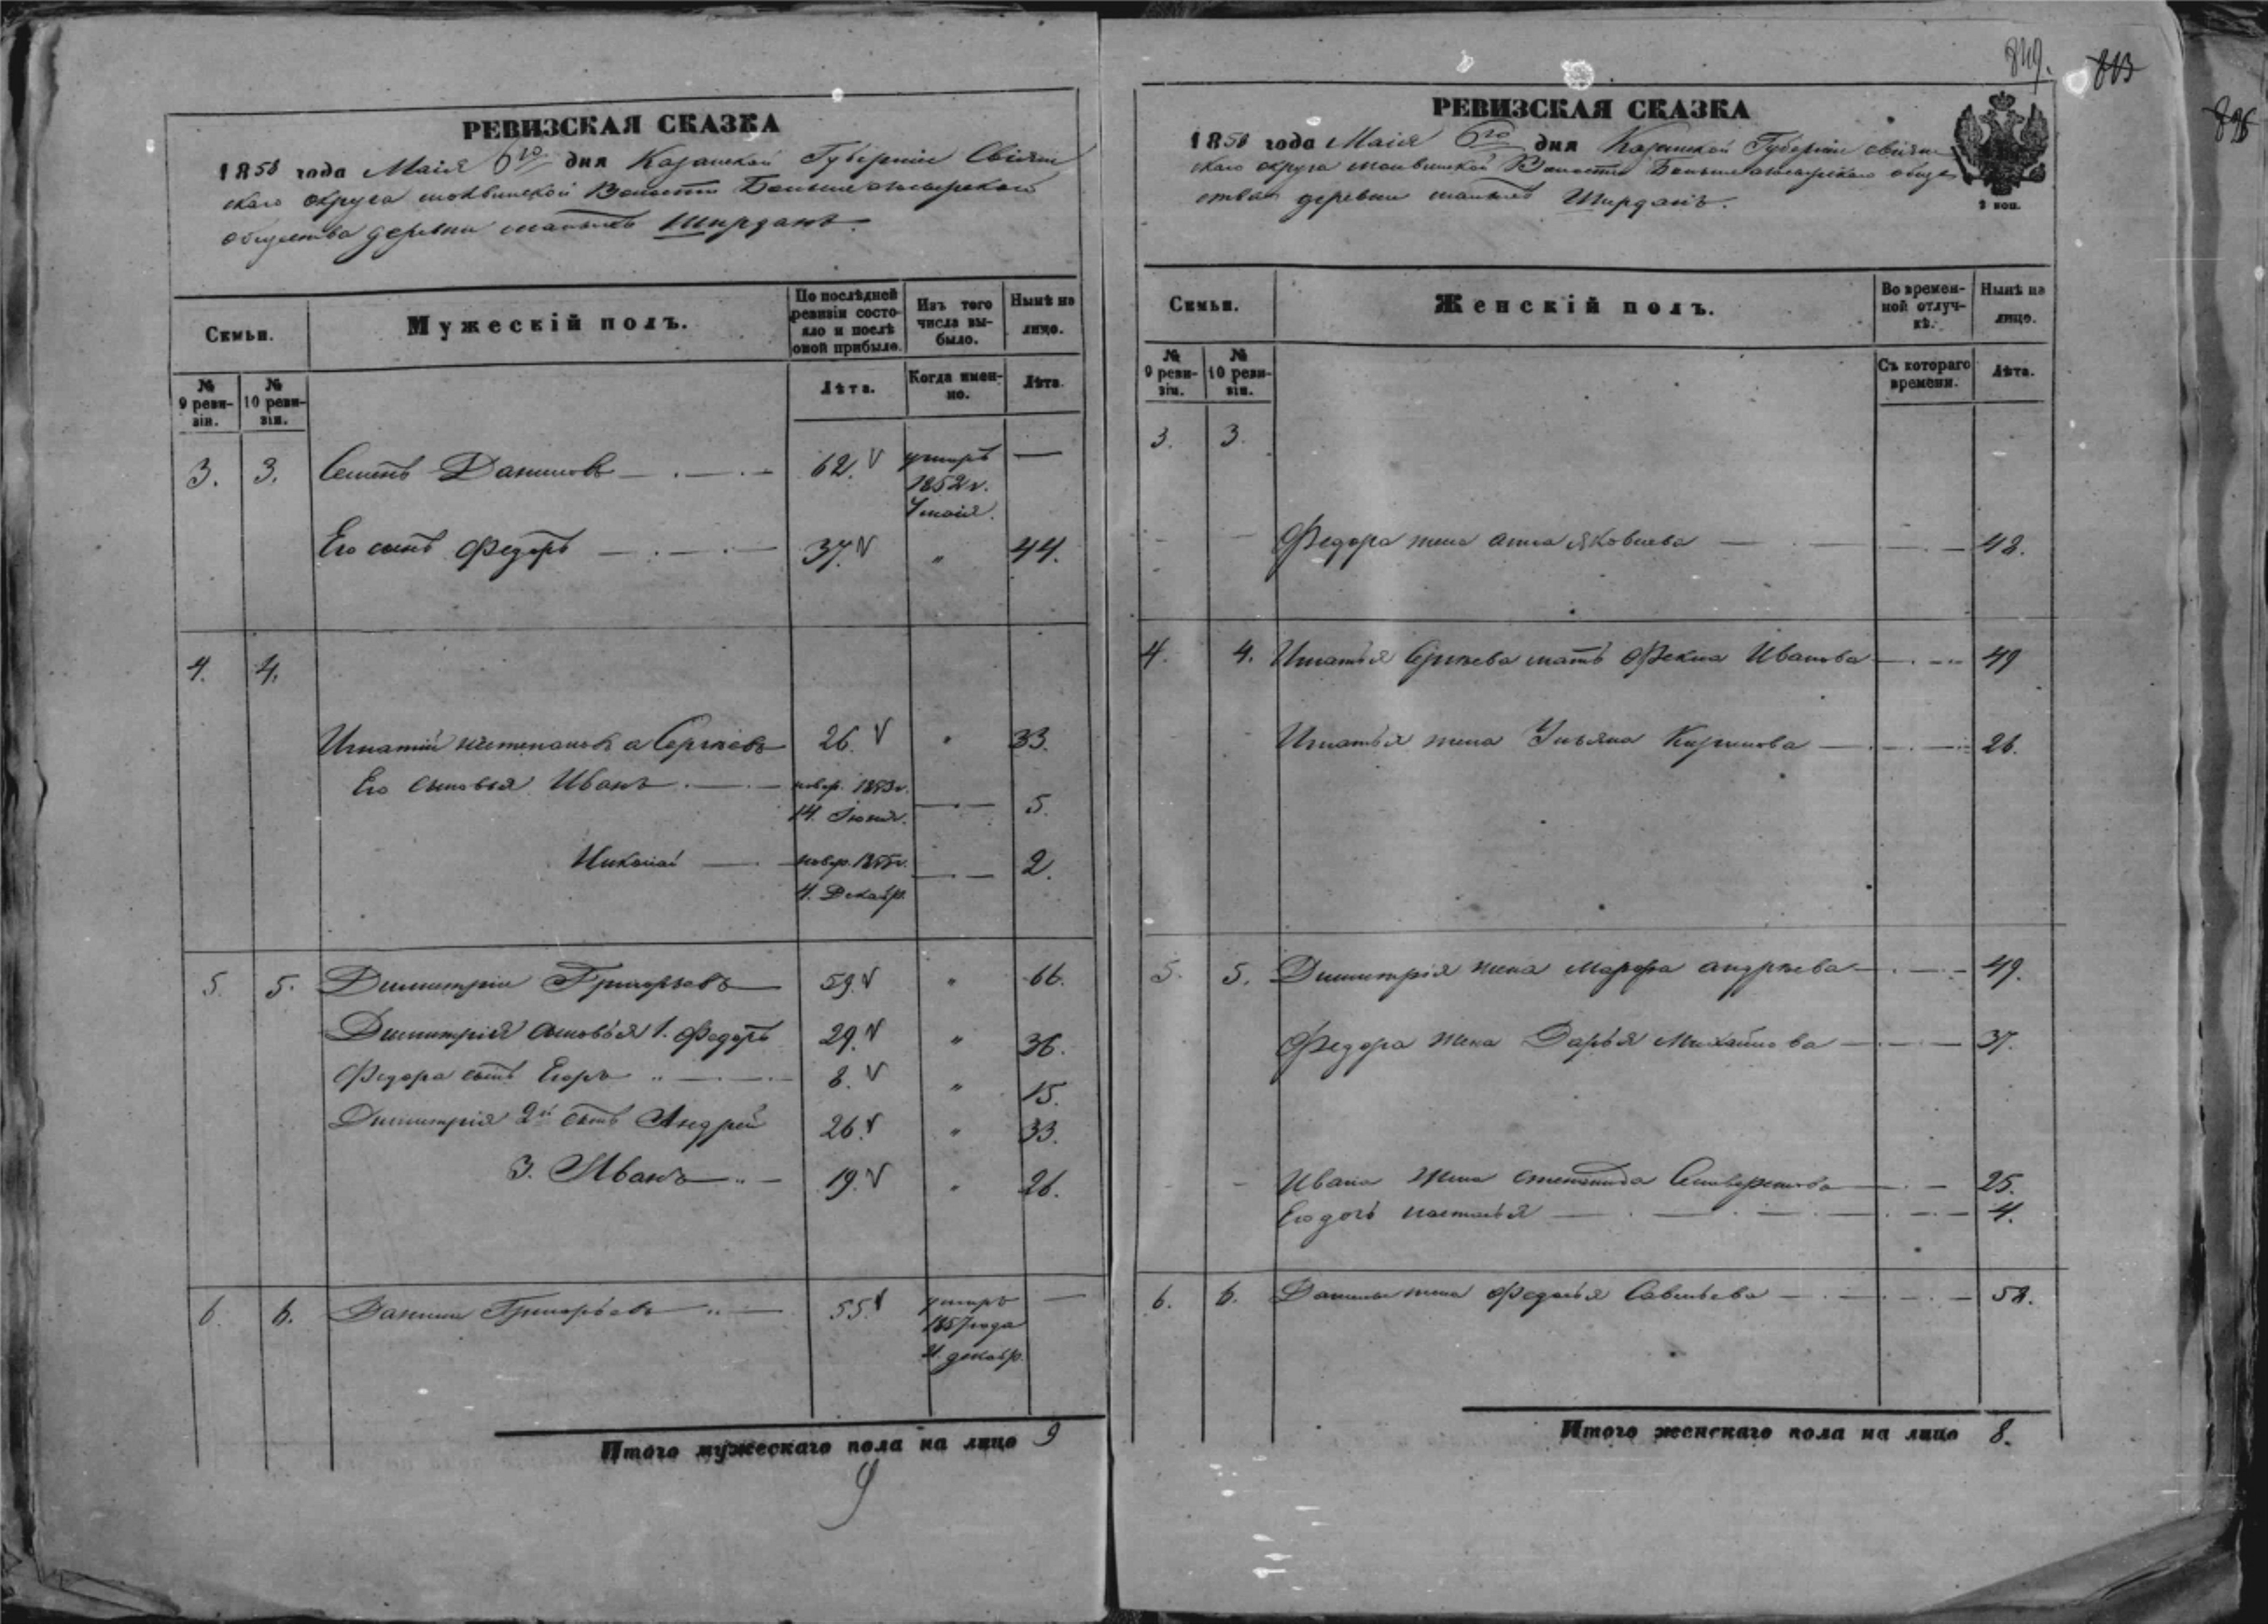 РЕВИЗСКАЯ СКАЗКА
1858 года Маія 6го дня Казанской Губерніи Свіяж
скаго округа Волости
общества деревни малыхъ Ширданъ.
Семьи.
Мужескій полъ.
По послѣдней
ревизіи состо-
яло и послѣ
оной прибыло.
Изъ того
числа вы-
было.
Нынѣ на
лицо.
№
9 реви-
зіи.
№
10 реви-
зіи.
Лѣта.
Когда имен-
но.
Лѣта.
3. 3. Семенъ Даниловъ 62. умеръ —
1852 г.
7 маія.
Его сынъ Федоръ 37. " 44.
4. 4.
Игнатій Сергѣевъ 26. " 33.
Его сыновья Иванъ новор. 1853 г.
14. Іюня. 5.
Николай новор. 1855 г. 2.
4. Декабр.
5. 5. Димитріи Григорьевъ 59. " 66.
Димитрія сыновья 1. Федоръ 29. " 36.
Федора сынъ Егоръ " 8. " 15.
Димитрія 2й сынъ Андрей 26. " 33.
3. Иванъ " 19. " 26.
6. 6. Данила Григорьевъ " 55 умеръ —
1857 года
декабр.
Итого мужескаго пола на лицо 9
9
849.
813
РЕВИЗСКАЯ СКАЗКА
1858 года Маія 6го дня Казанской Губерніи Свіяж
скаго округа Волости обще
ства деревни малыхъ Ширданъ.
2 коп.
Семьи.
Женскій полъ.
Во времен-
ной отлуч-
кѣ.
Нынѣ на
лицо.
№
9 реви-
зіи.
№
10 реви-
зіи.
Съ котораго
времени.
Лѣта.
3. 3.
Федора жена анна Яковлева 48.
4. 4. Игнатья Сергѣева мать Фекла Иванова 49
Игнатья жена Ульяна Кирилова 26.
5. 5. Димитрія жена Марфа андрѣева 49.
Федора жена Дарья Михайлова 37.
Ивана жена степанида 25.
Его дочь настасья 4.
6. 6. Данилы жена Федосья Савельева 58.
Итого женскаго пола на лицо 8.